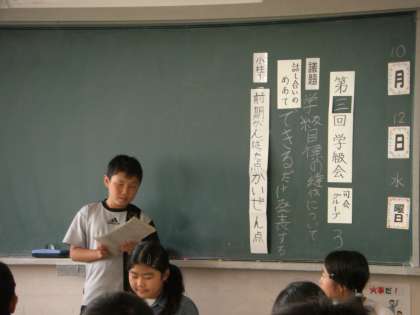 10
月
12
日
水
曜日
第三回 学級会
司会グループ 3
議題 学級目標の継続について
話し合いのめあて できるだけ発表する
小柱1 前期がんばった点かいぜん点
火事だ!